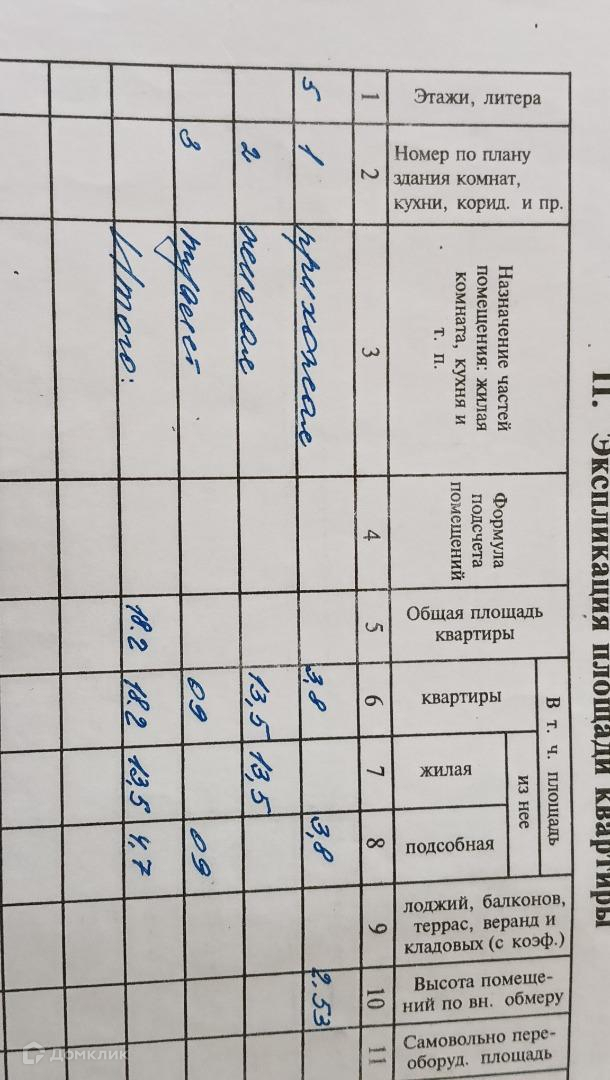 II. Экспликация площади квартиры
Этажи, литера
Номер по плану
здания комнат,
кухни, корид. и пр.
Назначение частей
помещения: жилая
комната, кухня и
т. п.
Формула
подсчета
помещений
Общая площадь
квартиры
В т. ч. площадь
квартиры
из нее
жилая
подсобная
лоджий, балконов,
террас, веранд и
кладовых (с коэф.)
Высота помеще-
ний по вн. обмеру
Самовольно пере-
оборуд. площадь
1 2 3 4 5 6 7 8 9 10 11
5 1 прихожая 3,8 3,8 2.53
2 жилая 13,5 13,5
3 туалет 09 09
Итого: 18.2 18.2 13,5 4,7
Домклик